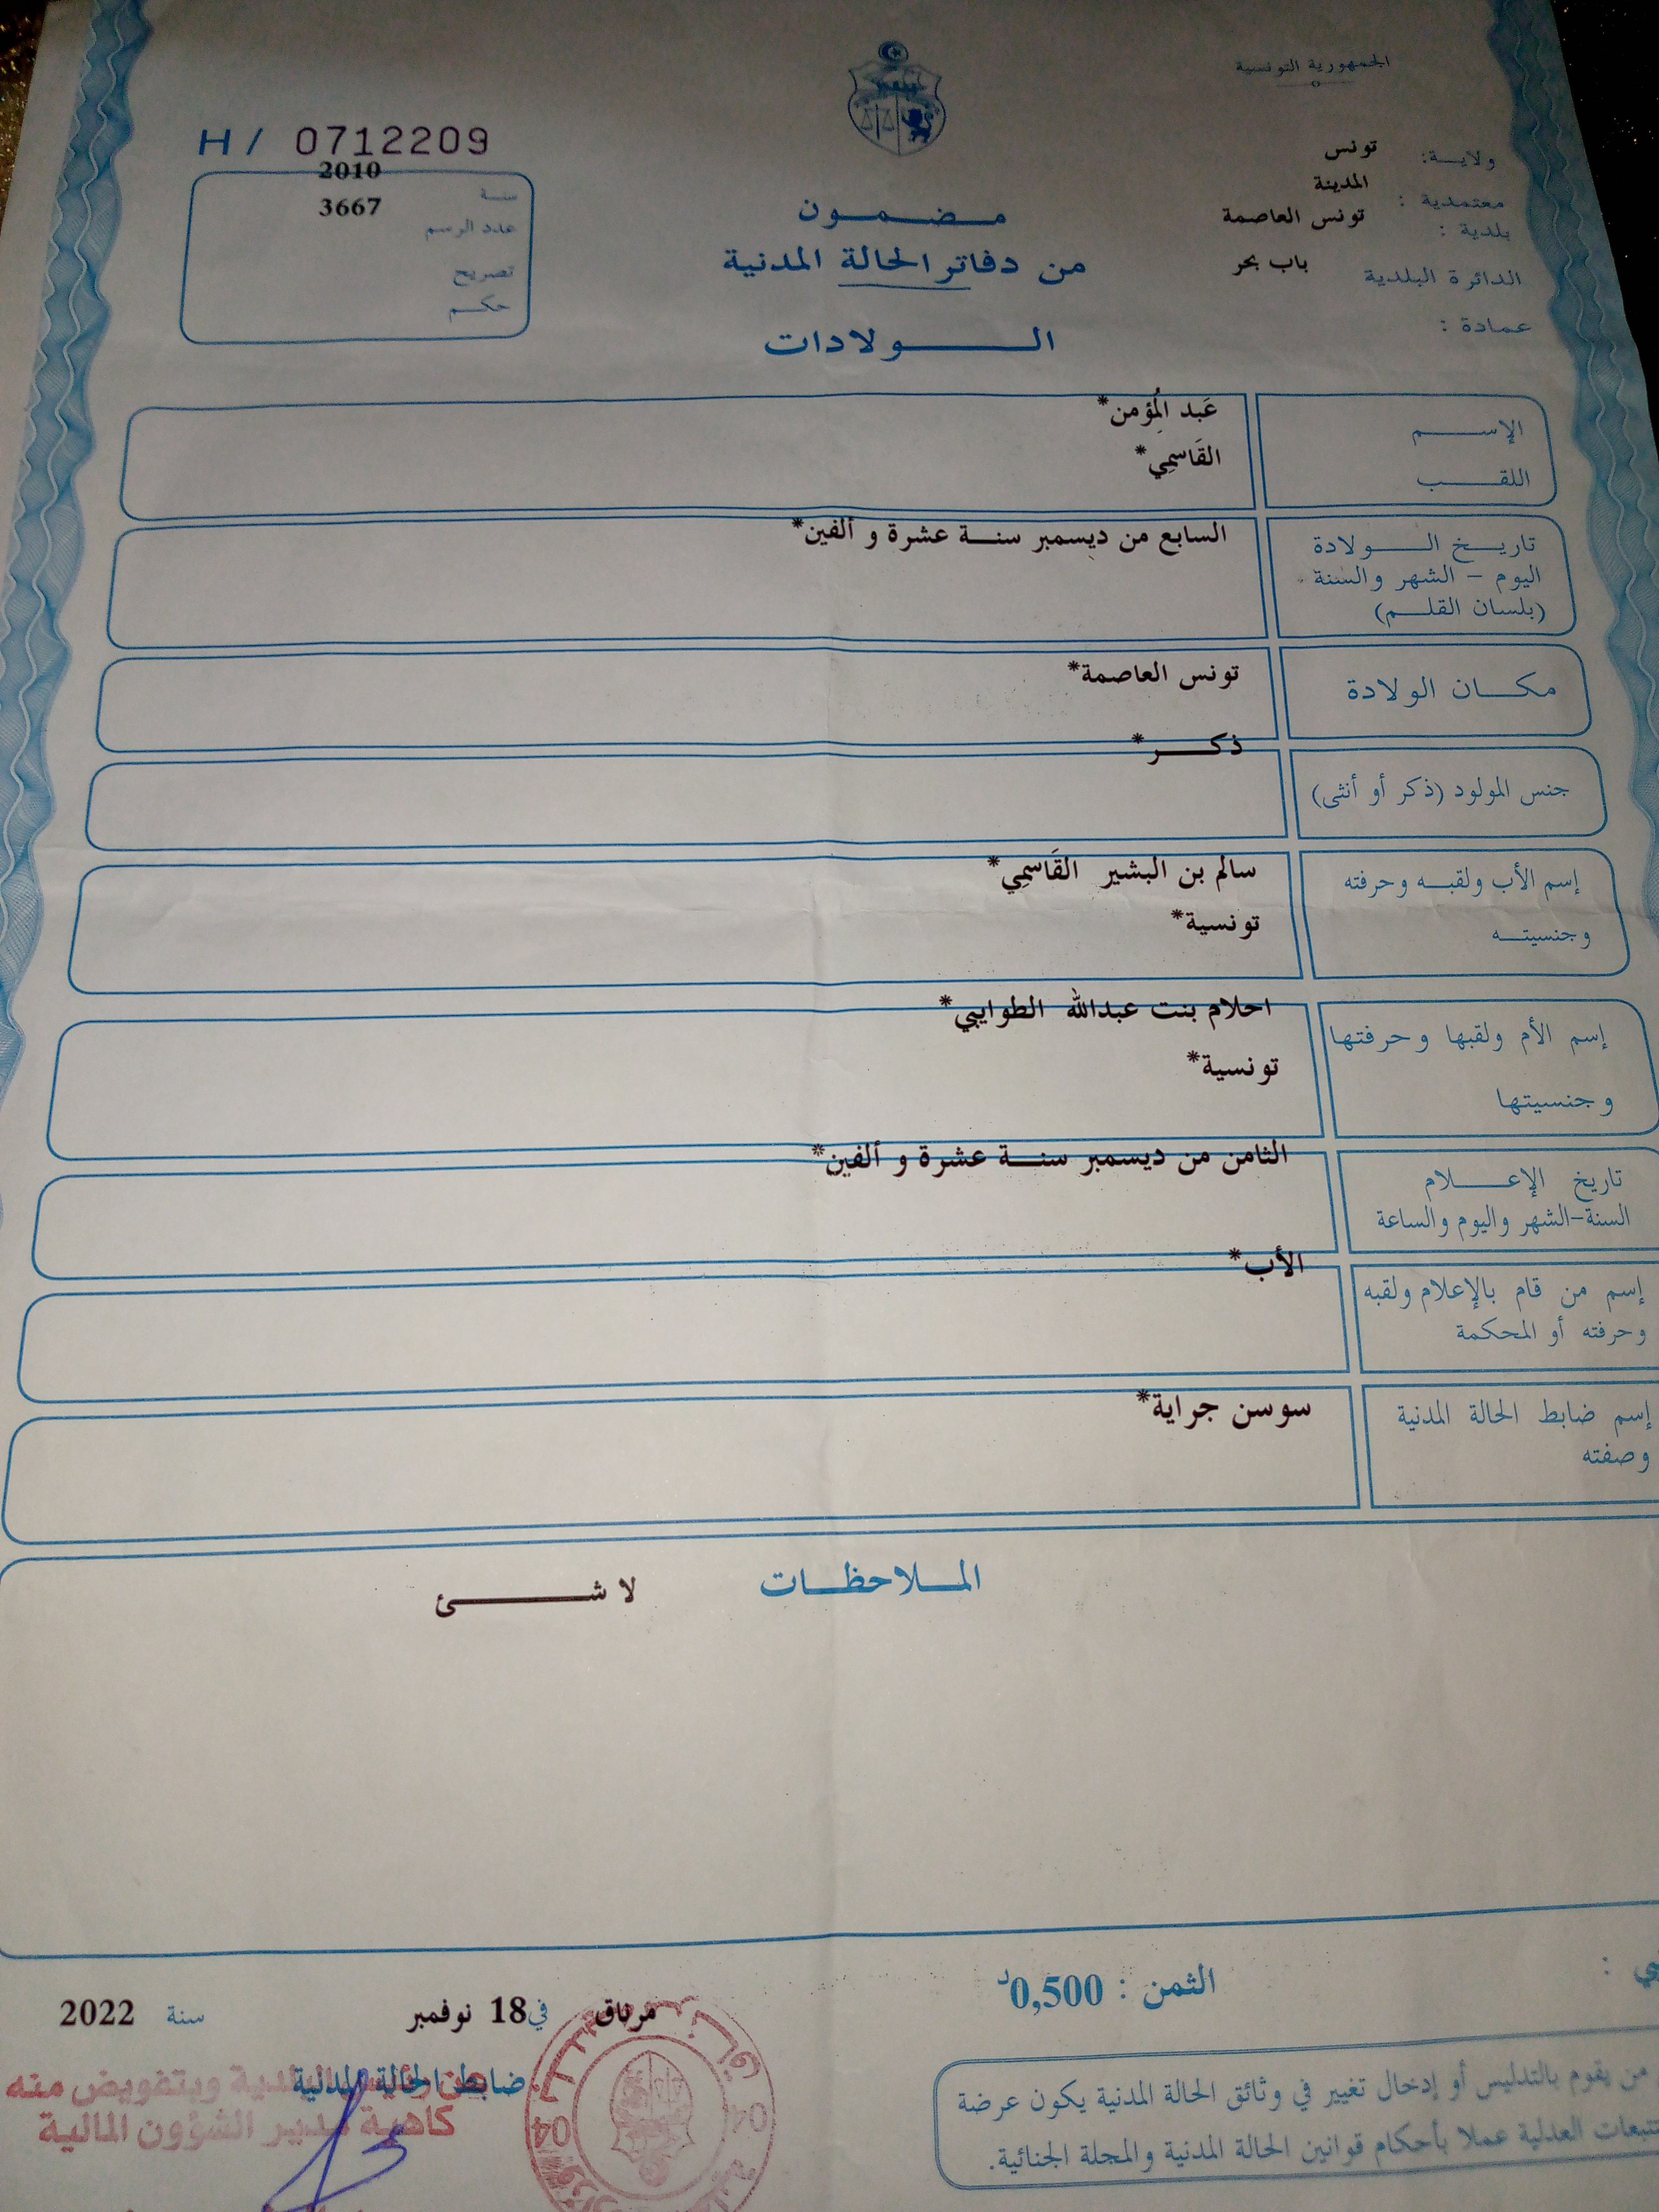 الجمهورية التونسية
ولاية: تونس
معتمدية : المدينة
بلدية : تونس العاصمة
الدائرة البلدية باب بحر
عمادة :
H / 0712209
سنة 2010
عدد الرسم 3667
تصريح
حكم
مضمون
من دفاتر الحالة المدنية
الولادات
الإسم عَبد المُؤمِن*
اللقب القَاسمِي*
تاريخ الولادة السابع من ديسمبر سنة عشرة و ألفين*
اليوم - الشهر والسنة
(بلسان القلم)
مكان الولادة تونس العاصمة*
جنس المولود (ذكر أو أنثى) ذكر*
إسم الأب ولقبه وحرفته سالم بن البشير القَاسمِي*
وجنسيته تونسية*
إسم الأم ولقبها وحرفتها احلام بنت عبدالله الطوايبي*
وجنسيتها تونسية*
تاريخ الإعلام الثامن من ديسمبر سنة عشرة و ألفين*
السنة-الشهر واليوم والساعة
إسم من قام بالإعلام ولقبه الأب*
وحرفته أو المحكمة
إسم ضابط الحالة المدنية سوسن جراية*
وصفته
الملاحظات لا شئ
الثمن : 0,500د
مرناق في 18 نوفمبر سنة 2022
ضابط الحالة المدنية
البلدية وبتفويض منه
كاهية مدير الشؤون المالية
04 04
من يقوم بالتدليس أو إدخال تغيير في وثائق الحالة المدنية يكون عرضة
للتتبعات العدلية عملا بأحكام قوانين الحالة المدنية والمجلة الجنائية.